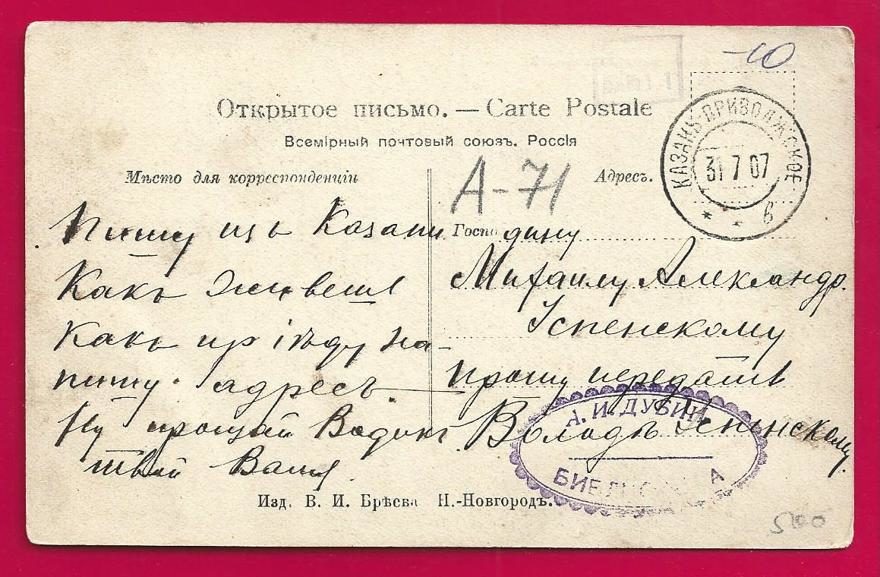 -10
Открытое письмо. — Carte Postale
Всемірный почтовый союзъ. Россія
КАЗАНЬ-ПРИВОЛЖСКОЕ
31 7 07
6
Мѣсто для корреспонденціи
А-71
Адресъ.
Пишу изъ Казани
Какъ живешь
Какъ пріѣду на-
пишу адресъ
Ну прощай
твой Ваня
Господину
Михаилу Александр.
Успенскому
прошу передать
Володѣ Успенскому.
А. И. ДУБИН
БИБЛИОТЕКА
Изд. В. И. Брѣева Н.-Новгородъ.
5100